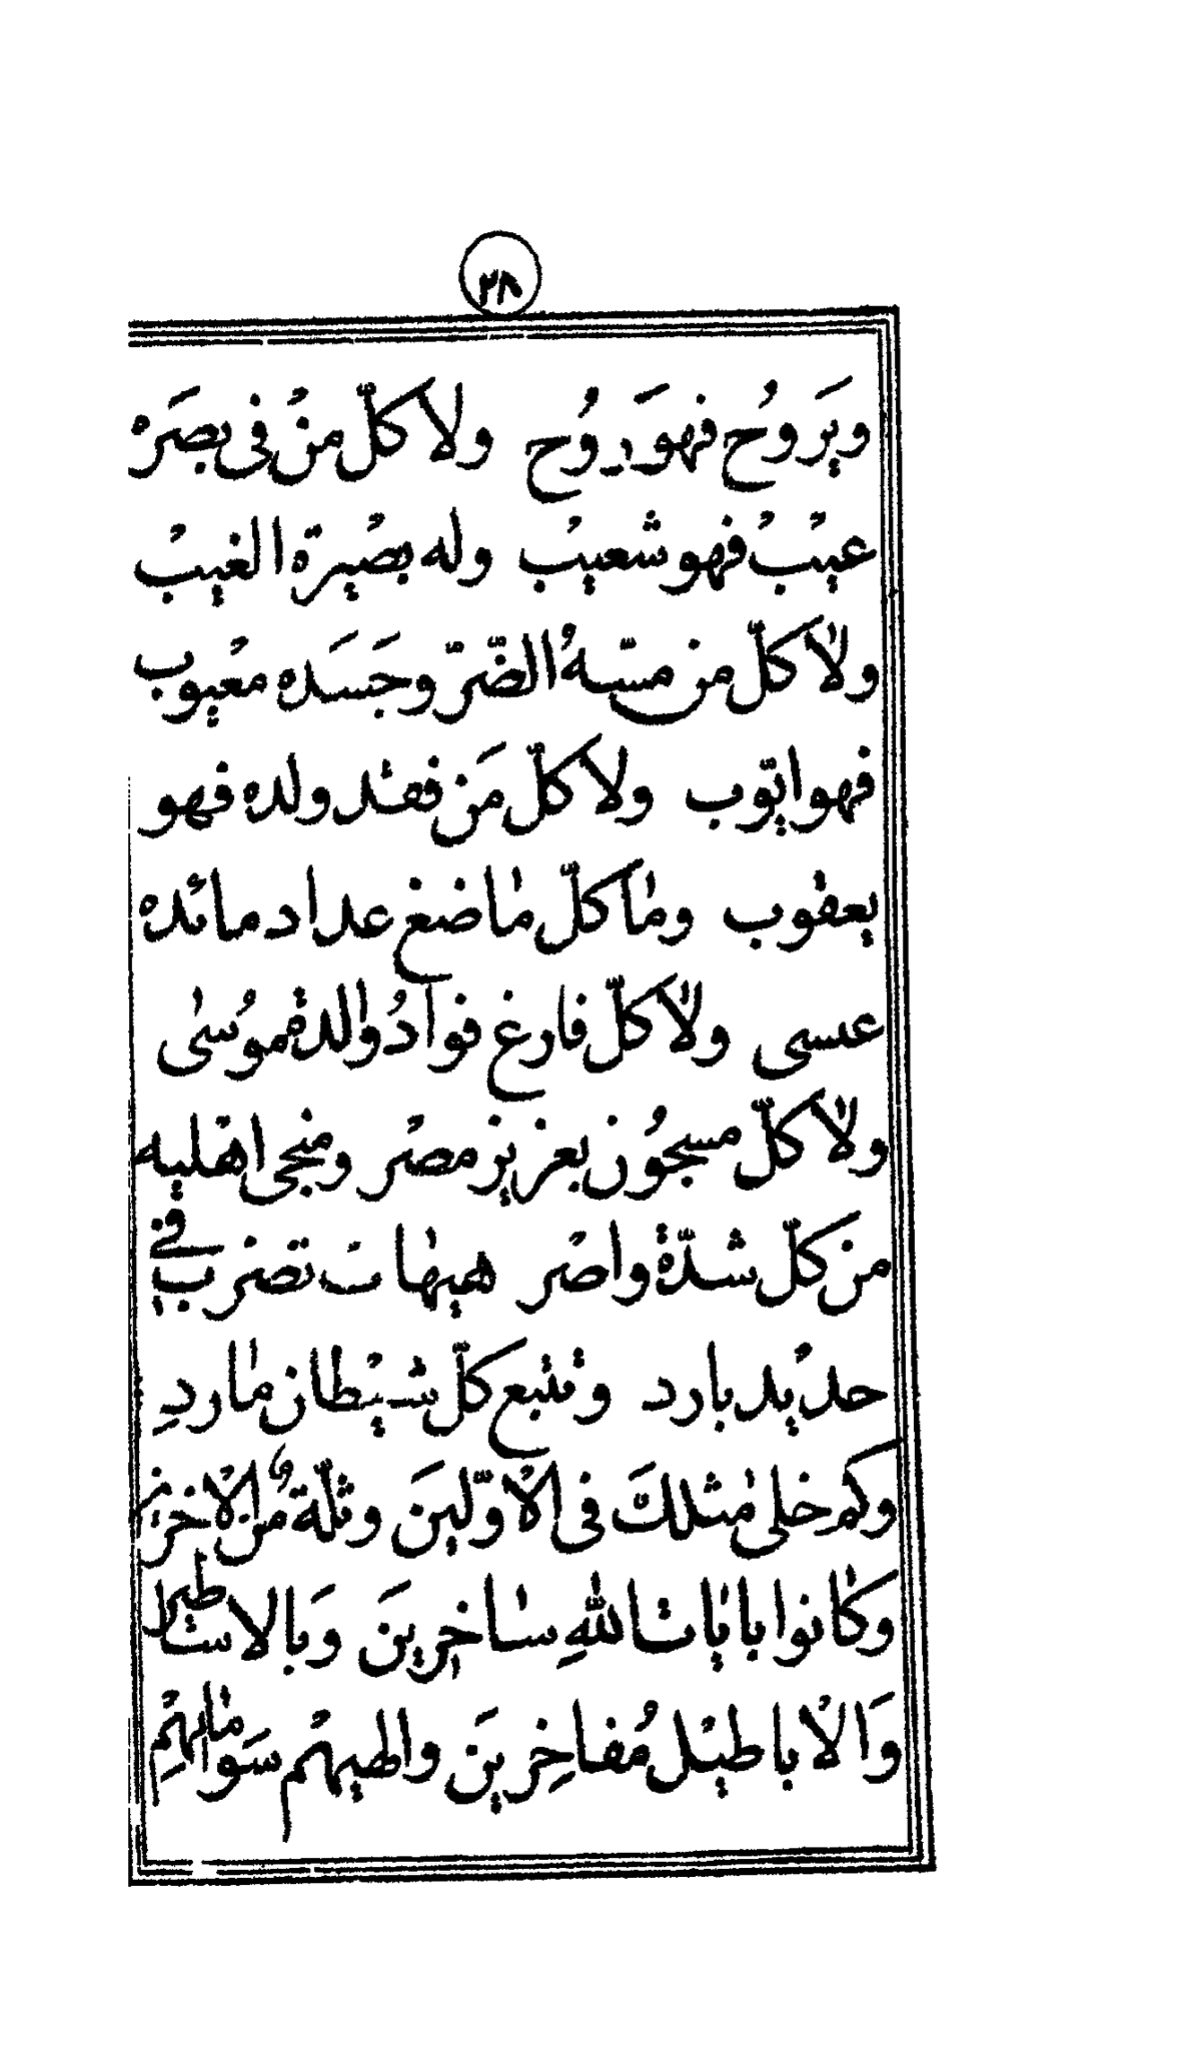 ٢٨
ويَروُح فهوَ رُوح ولا كلّ منُ فى بصَره
عيبُ فهو شعيبُ وله بصُيرة الغيبُ
ولا كلّ من مسّهُ الضّرّ وجَسَده معُيوب
فهو ايّوب ولا كلّ مَن فقد ولده فهو
يعقوب وما كلّ ماضغ عداد مائده
عسى ولا كلّ فارغ فوادُ والدة موُسى
ولا كلّ مسجوُن بعزيز مصُر ومنجى اهليه
من كلّ شدّة واصُر هيهات تضرب في
حديُد بارد وتتبع كلّ شيُطان ماردِ
وكم خلى مثلكَ فى الاوّلينَ وثلّة منُ الاخرين
وكانوا باياتاللهِ ساخرِينَ وَبالاساطير
وَالاباطيُل مُفاخِرِينَ والهيهُم سَواماِلهُم